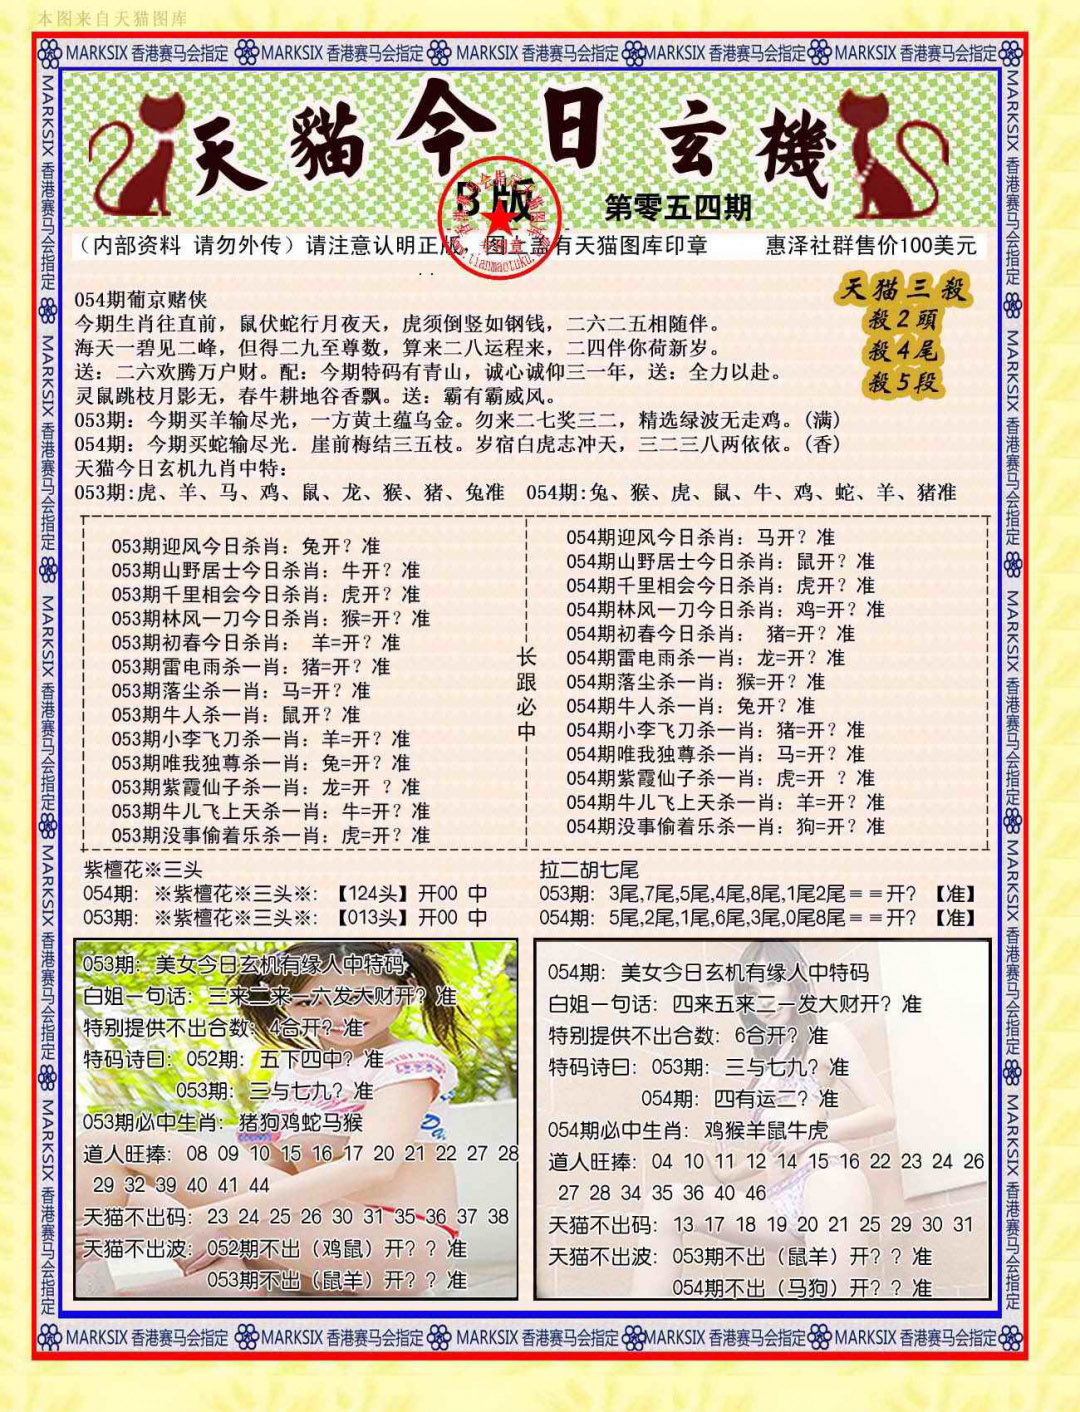 本图来自天猫图库
MARKSIX 香港赛马会指定 MARKSIX 香港赛马会指定 MARKSIX 香港赛马会指定 MARKSIX 香港赛马会指定 MARKSIX 香港赛马会指定
MARKSIX 香港赛马会指定 MARKSIX 香港赛马会指定 MARKSIX 香港赛马会指定 MARKSIX 香港赛马会指定 MARKSIX 香港赛马会指定
MARKSIX 香港赛马会指定 MARKSIX 香港赛马会指定 MARKSIX 香港赛马会指定 MARKSIX 香港赛马会指定 MARKSIX 香港赛马会指定
天貓今日玄機
B版
第零五四期
（内部资料 请勿外传）请注意认明正版，图上盖有天猫图库印章 惠泽社群售价100美元
天猫三殺
殺2頭
殺4尾
殺5段
054期葡京赌侠
今期生肖往直前，鼠伏蛇行月夜天，虎须倒竖如钢钱，二六二五相随伴。
海天一碧见二峰，但得二九至尊数，算来二八运程来，二四伴你荷新岁。
送：二六欢腾万户财。配：今期特码有青山，诚心诚仰三一年，送：全力以赴。
灵鼠跳枝月影无，春牛耕地谷香飘。送：霸有霸威风。
053期：今期买羊输尽光，一方黄土蕴乌金。勿来二七奖三二，精选绿波无走鸡。（满）
054期：今期买蛇输尽光．崖前梅结三五枝。岁宿白虎志冲天，三二三八两依依。（香）
天猫今日玄机九肖中特：
053期:虎、羊、马、鸡、鼠、龙、猴、猪、兔准 054期:兔、猴、虎、鼠、牛、鸡、蛇、羊、猪准
053期迎风今日杀肖：兔开？准
053期山野居士今日杀肖：牛开？准
053期千里相会今日杀肖：虎开？准
053期林风一刀今日杀肖：猴=开？准
053期初春今日杀肖： 羊=开？准
053期雷电雨杀一肖：猪=开？准
053期落尘杀一肖：马=开？准
053期牛人杀一肖：鼠开？准
053期小李飞刀杀一肖：羊=开？准
053期唯我独尊杀一肖：兔=开？准
053期紫霞仙子杀一肖：龙=开 ？准
053期牛儿飞上天杀一肖：牛=开？准
053期没事偷着乐杀一肖：虎=开？准
长跟必中
054期迎风今日杀肖：马开？准
054期山野居士今日杀肖：鼠开？准
054期千里相会今日杀肖：虎开？准
054期林风一刀今日杀肖：鸡=开？准
054期初春今日杀肖： 猪=开？准
054期雷电雨杀一肖：龙=开？准
054期落尘杀一肖：猴=开？准
054期牛人杀一肖：兔开？准
054期小李飞刀杀一肖：猪=开？准
054期唯我独尊杀一肖：马=开？准
054期紫霞仙子杀一肖：虎=开 ？准
054期牛儿飞上天杀一肖：羊=开？准
054期没事偷着乐杀一肖：狗=开？准
紫檀花※三头
054期：※紫檀花※三头※：【124头】开00 中
053期：※紫檀花※三头※：【013头】开00 中
拉二胡七尾
053期：3尾,7尾,5尾,4尾,8尾,1尾2尾＝＝开？【准】
054期：5尾,2尾,1尾,6尾,3尾,0尾8尾＝＝开？【准】
053期：美女今日玄机有缘人中特码
白姐一句话：三来二来一六发大财开？准
特别提供不出合数：4合开？准
特码诗曰：052期：五下四中？准
053期：三与七九？准
053期必中生肖：猪狗鸡蛇马猴
道人旺捧：08 09 10 15 16 17 20 21 22 27 28
29 32 39 40 41 44
天猫不出码：23 24 25 26 30 31 35 36 37 38
天猫不出波：052期不出（鸡鼠）开？？准
053期不出（鼠羊）开？？准
054期：美女今日玄机有缘人中特码
白姐一句话：四来五来二一发大财开？准
特别提供不出合数：6合开？准
特码诗曰：053期：三与七九？准
054期：四有运二？准
054期必中生肖：鸡猴羊鼠牛虎
道人旺捧：04 10 11 12 14 15 16 22 23 24 26
27 28 34 35 36 40 46
天猫不出码：13 17 18 19 20 21 25 29 30 31
天猫不出波：053期不出（鼠羊）开？？准
054期不出（马狗）开？？准
MARKSIX 香港赛马会指定 MARKSIX 香港赛马会指定 MARKSIX 香港赛马会指定 MARKSIX 香港赛马会指定 MARKSIX 香港赛马会指定